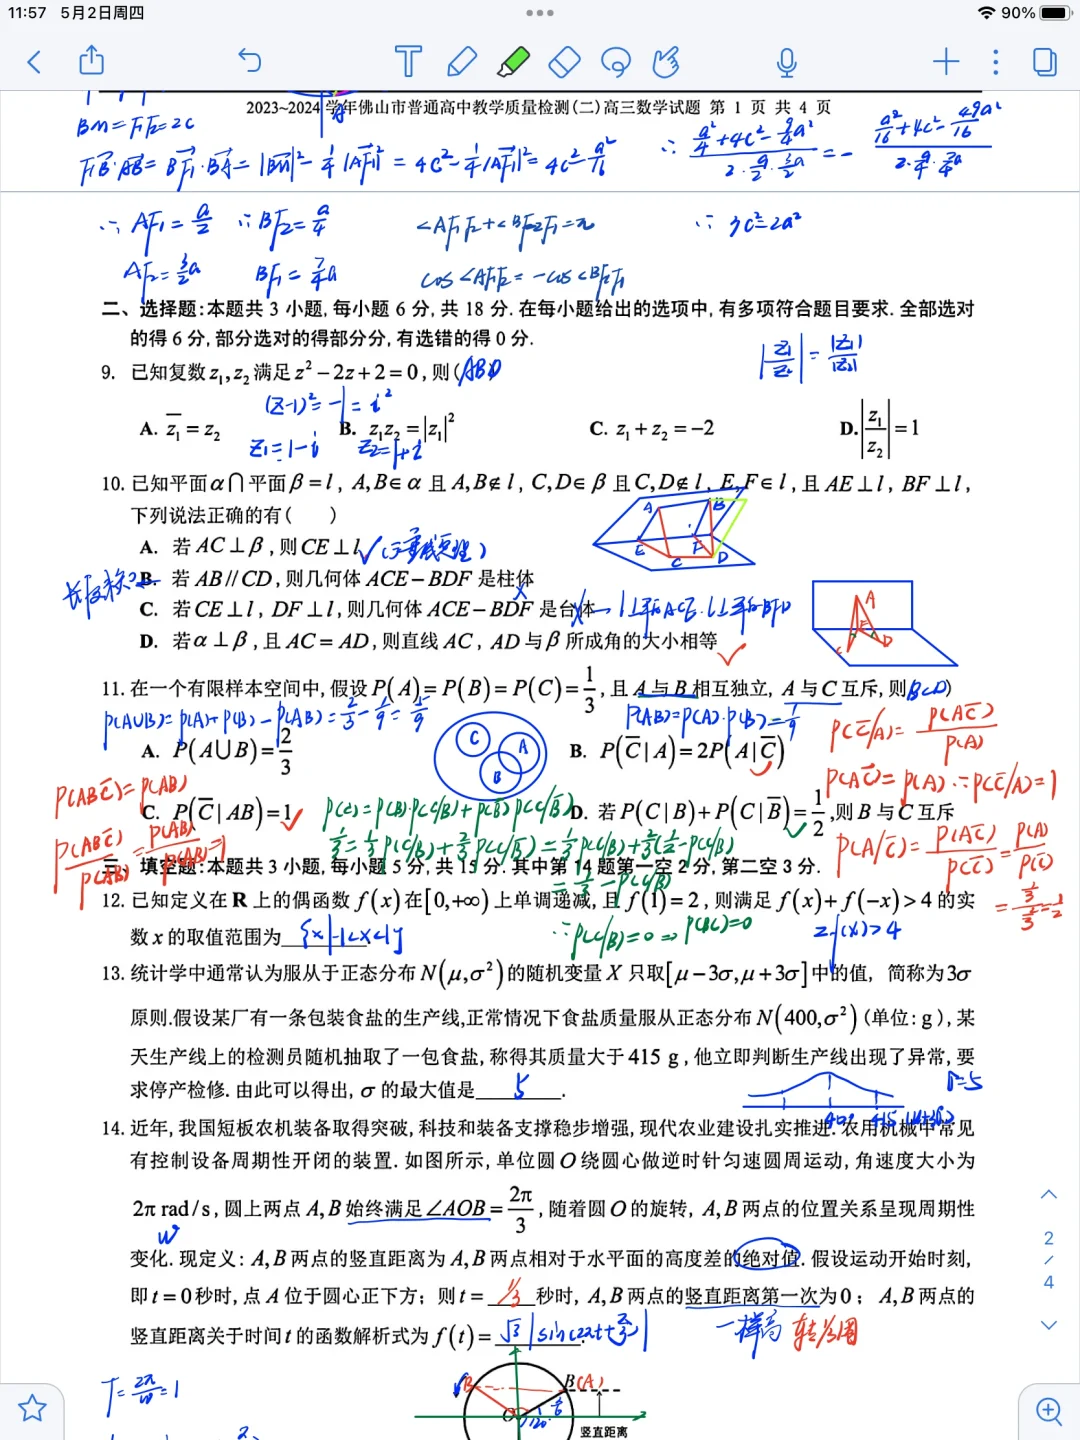 11:57 5月2日周四
90%
2023~2024学年佛山市普通高中教学质量检测(二)高三数学试题 第 1 页 共 4 页
BM=F₁F₂=2c
∴ AF₁=a/2 ∴BF₂=a/4
∠AF₁F₂+∠BF₂F₁=π
∴ 3c²=2a²
AF₂=3/2a BF₁=7/4a
cos∠AF₁F₂=-cos∠BF₂F₁
二、选择题:本题共 3 小题, 每小题 6 分, 共 18 分. 在每小题给出的选项中, 有多项符合题目要求. 全部选对
的得 6 分, 部分选对的得部分分, 有选错的得 0 分.
|z₁/z₂|=|z₁|/|z₂|
9. 已知复数 z₁, z₂ 满足 z²−2z+2=0, 则( ABD )
(z-1)²=-1=i²
A. z̅₁=z₂ B. z₁z₂=|z₁|² C. z₁+z₂=−2 D. |z₁/z₂|=1
z₁=1-i z₂=1+i
10. 已知平面α∩平面β=l, A,B∈α 且 A,B∉l, C,D∈β 且 C,D∉l, E,F∈l, 且 AE⊥l, BF⊥l,
下列说法正确的有( )
A. 若 AC⊥β, 则 CE⊥l ✓(三垂线定理)
B. 若 AB//CD, 则几何体 ACE−BDF 是柱体
C. 若 CE⊥l, DF⊥l, 则几何体 ACE−BDF 是台体 l⊥平面ACE. l⊥平面BFD
D. 若α⊥β, 且 AC=AD, 则直线 AC, AD 与β所成角的大小相等
11. 在一个有限样本空间中, 假设 P(A)=P(B)=P(C)=1/3, 且 A 与 B 相互独立, A 与 C 互斥, 则( BCD )
P(A∪B)=P(A)+P(B)-P(AB)=2/3-1/9=5/9
P(AB)=P(A)·P(B)=1/9
P(C̅/A)=P(AC̅)/P(A)
A. P(A∪B)=2/3 B. P(C̅|A)=2P(A|C̅)
P(AC̅)=P(A)∴P(C̅/A)=1
P(ABC̅)=P(AB)
C. P(C̅|AB)=1 D. 若 P(C|B)+P(C|B̅)=1/2, 则 B 与 C 互斥
P(C)=P(B)P(C/B)+P(B̅)P(C/B̅)
P(ABC̅)/P(AB)=P(AB)/P(AB)=1
1/3=1/3P(C/B)+2/3P(C/B̅)=1/3P(C/B)+2/3(1/2-P(C/B))
P(A/C̅)=P(AC̅)/P(C̅)=P(A)/P(C̅)
三、填空题:本题共 3 小题, 每小题 5 分, 共 15 分. 其中第 14 题第一空 2 分, 第二空 3 分.
12. 已知定义在 R 上的偶函数 f(x) 在[0,+∞)上单调递减, 且 f(1)=2, 则满足 f(x)+f(−x)>4 的实
∴P(C/B)=0⇒P(BC)=0
2f(x)>4
数 x 的取值范围为 {x|-1<x<1}
13. 统计学中通常认为服从于正态分布 N(μ,σ²)的随机变量 X 只取[μ−3σ,μ+3σ]中的值, 简称为3σ
原则.假设某厂有一条包装食盐的生产线,正常情况下食盐质量服从正态分布 N(400,σ²)(单位:g), 某
天生产线上的检测员随机抽取了一包食盐, 称得其质量大于 415 g, 他立即判断生产线出现了异常, 要
求停产检修. 由此可以得出, σ 的最大值是 5 .
σ=5
400 415
14. 近年, 我国短板农机装备取得突破, 科技和装备支撑稳步增强, 现代农业建设扎实推进. 农用机械中常见
有控制设备周期性开闭的装置. 如图所示, 单位圆O绕圆心做逆时针匀速圆周运动, 角速度大小为
2π rad/s, 圆上两点 A,B 始终满足∠AOB=2π/3, 随着圆O的旋转, A,B 两点的位置关系呈现周期性
w
变化. 现定义: A,B 两点的竖直距离为 A,B 两点相对于水平面的高度差的绝对值. 假设运动开始时刻,
即 t=0秒时, 点 A 位于圆心正下方; 则 t= 1/3 秒时, A,B 两点的竖直距离第一次为 0; A,B 两点的
竖直距离关于时间 t 的函数解析式为 f(t)= √3|sin(2πt+2π/3)| .
一样高 转1/3圆
T=2π/w=1
B B(A)
O 120° π/6
竖直距离
2
/
4